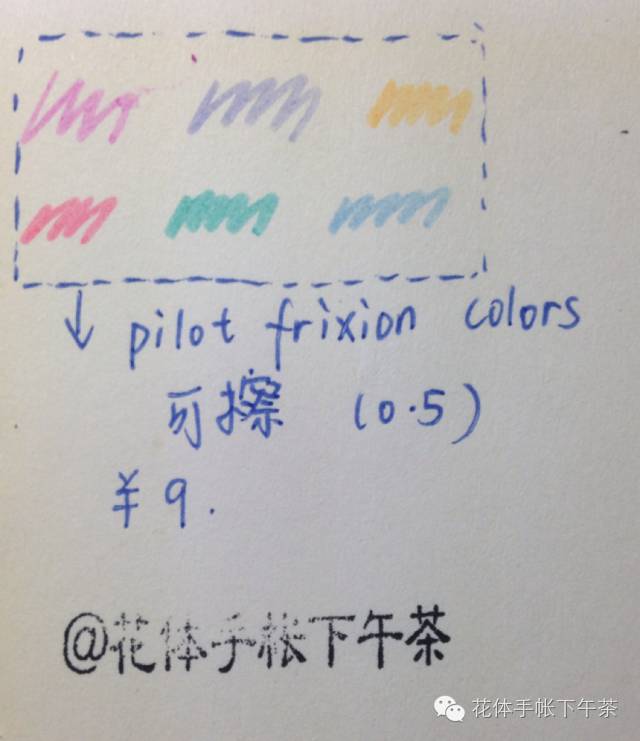 pilot frixion colors
可擦 (0.5)
¥9.
@花体手帐下午茶
花体手帐下午茶